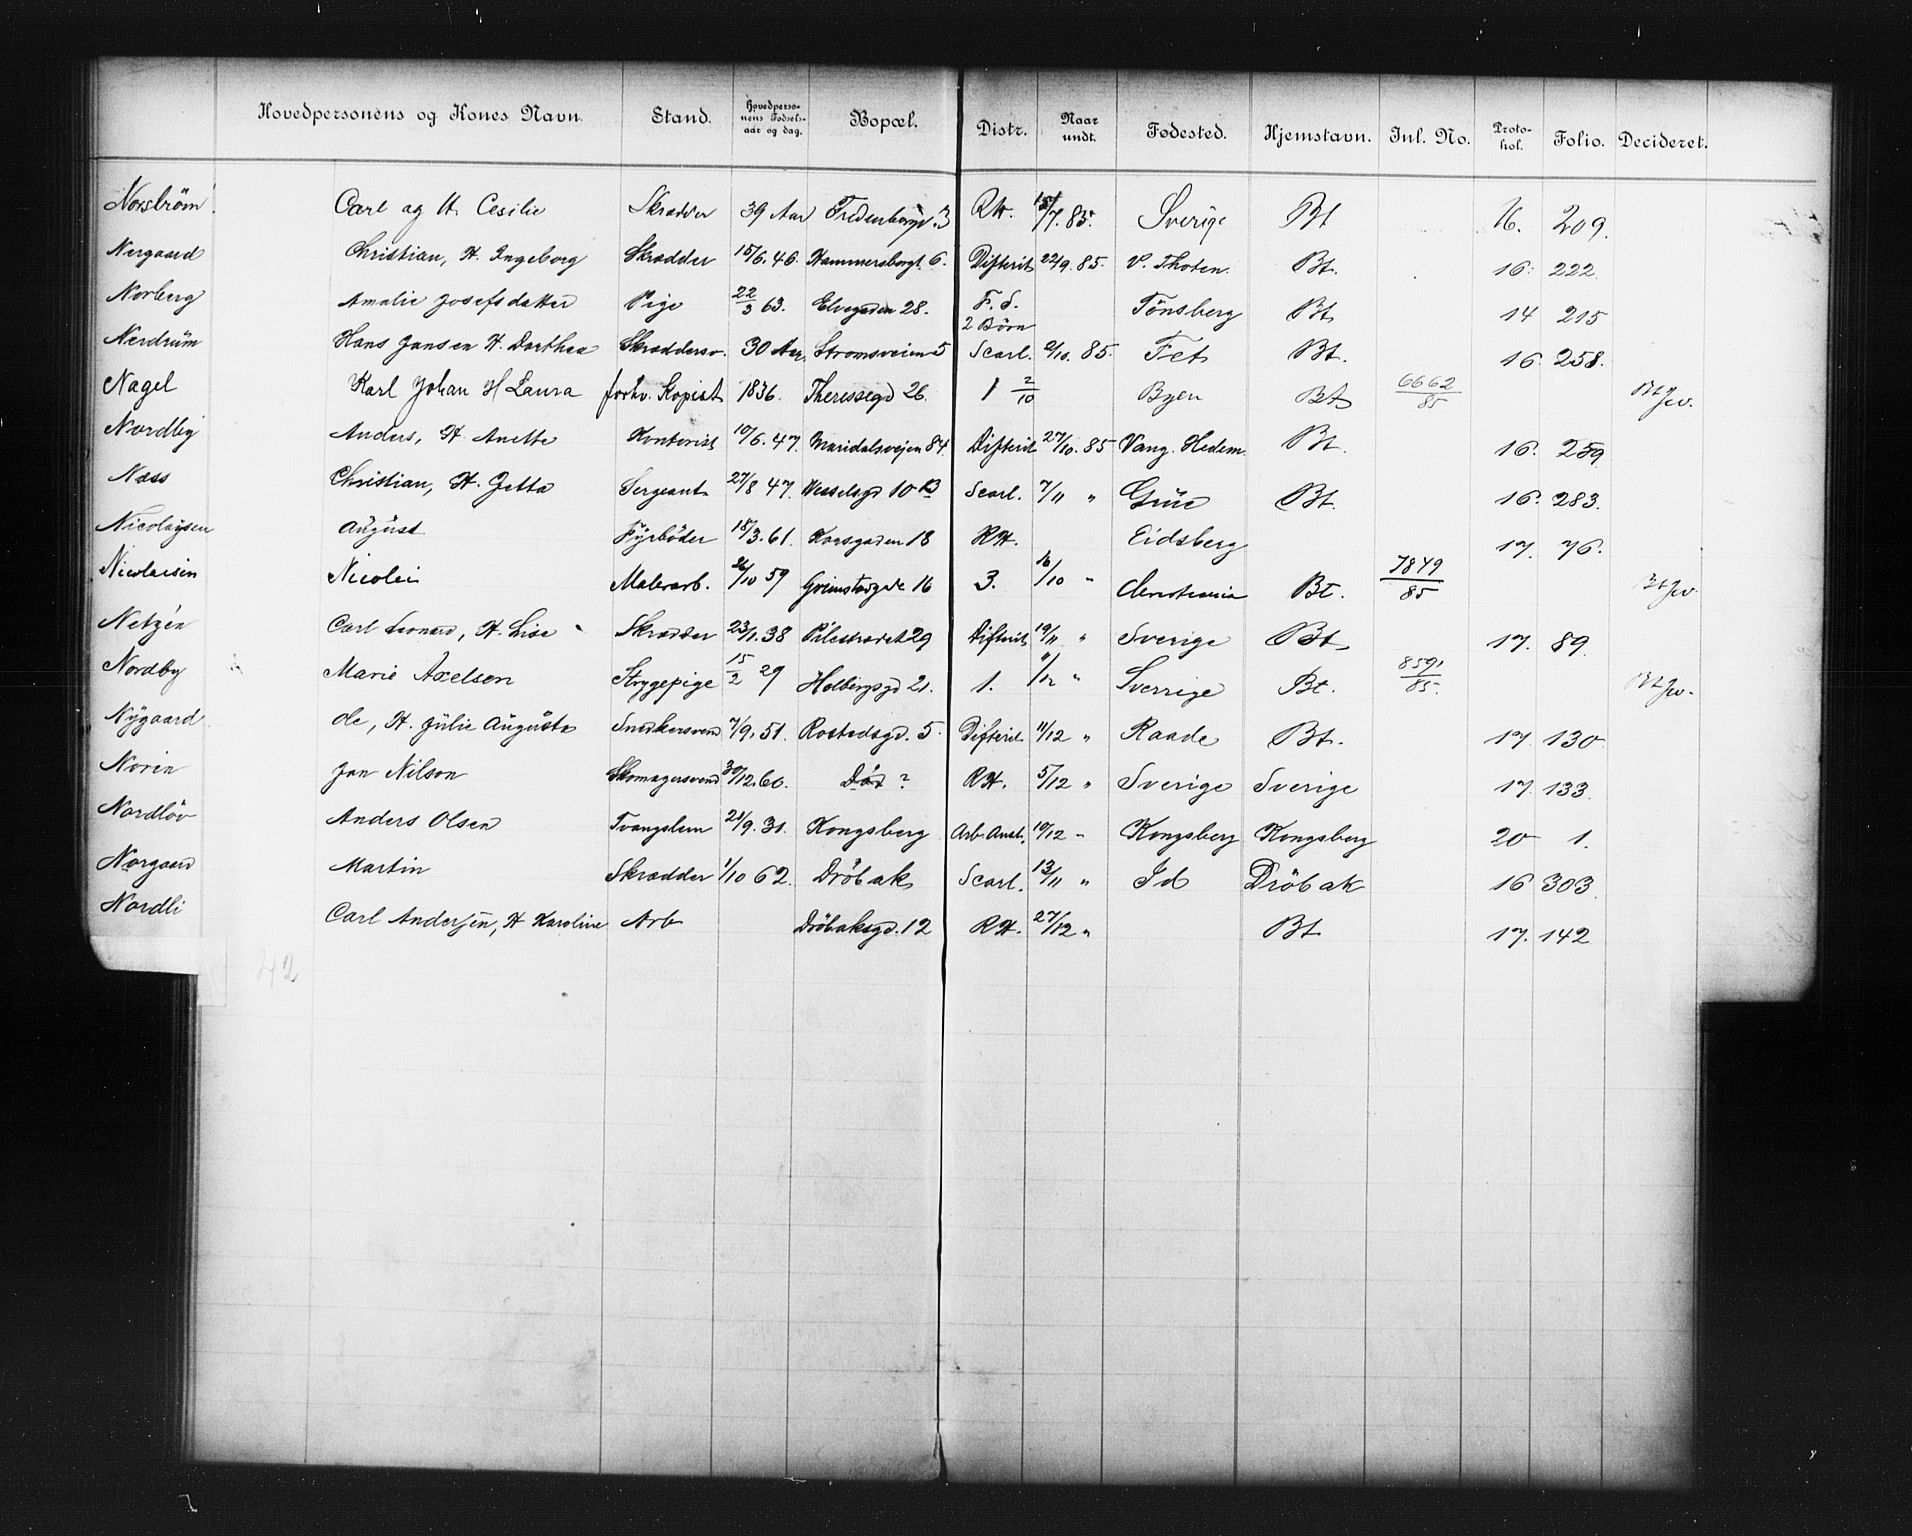 Hovedpersonens og Kones Navn. Stand. Hovedperso-nens Fødsels-aar og dag. Bopæl. Distr. Naar undt. Fødested. Hjemstavn. Inl. No. Proto-kol. Folio. Decideret.
Norström Carl og H. Cesilie Skrædder 39 Aar 3 RH. /7. 85. Sverige Bt 16. 209.
Nergaard Christian, H. Ingeborg Skrædder 15/6. 46. Hammersborgt. 6. Difterit 22/9. 85. V. Thoten. Bt. 16. 222
Norberg Amalie Josefsdatter Pige 22/3 63. Elvegaden 28. F. S. 2 Börn Tönsberg Bt 14 215
Nerdrüm Hans Jansen H. Dorthea Skræddersv. 30 Aar, Strömsveien 5 Scarl. /10. 85. Fet Bt. 16. 258.
Nagel Karl Johan H Laura forhv. Kopist 1836. Theressegd 26. 1 2/10 Byen Bt 6662/85 Bt
Nordby Anders, H. Anette Kontorist 10/6. 47. Maridalsveien 84. Difterit 27/10. 85 Vang. Hedem. Bt. 16. 259
Næss Christian, H. Jetta Sergeant 27/8 47. Wesselsgd 10 B Scarl. 7/11 " Grüe Bt. 16. 283.
Nicolaysen August Fyrböder 18/3. 61. Korsgaden 18 RH. Eidsberg 17. 76.
Nicolaisen Nicolai Malerarb. 26/10 59 Grimstadgade 16 3. 16/10 " Christiania Bt. 7849/85 Bt
Netzén Carl Leonard, H. Lise Skrædder 23/1. 38 Pilestrædet 29 Difterit 19/11 " Sverige Bt 17. 89.
Nordby Marie Axelsen Strygepige 15/2 29 Holbergsgd 21. 1. /12 " Sverrige Bt. 8591/85. Bt
Nygaard Ole, H. Julie Augusta Snedkersvend 7/9. 51. Rostedsgd. 5. Difterit. 11/12 " Raade Bt. 17. 130.
Norin Jan Nilson Skomagersvend 30/12. 60. Död ? RH. 5/12 " Sverige Sverige 17. 133.
Nordlöv Anders Olsen Tvangslem 21/9. 31. Kongsberg Arb. Anst. 10/12 " Kongsberg Kongsberg 20 1.
Norgaard Martin Skrædder 1/10 62. Dröbak Scarl. 13/11 " Id Dröbak 16 303.
Nordli Carl Andersen, H Karoline Arb Dröbaksgd. 12 RH. 27/12 " Bt 17. 142
42